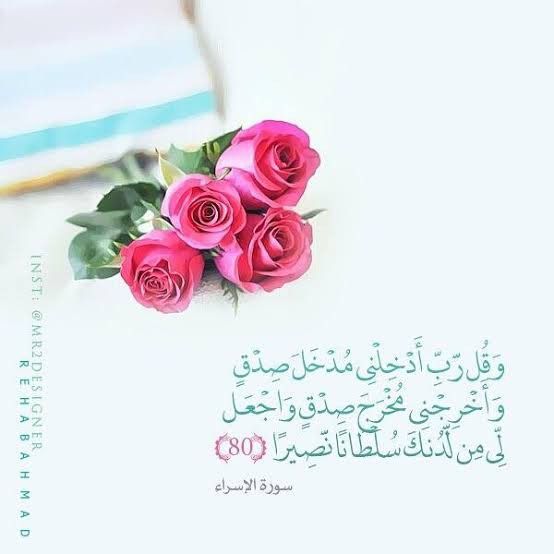 وَقُل رَّبِّ أَدْخِلْنِي مُدْخَلَ صِدْقٍ
وَأَخْرِجْنِي مُخْرَجَ صِدْقٍ وَاجْعَل
لِّي مِن لَّدُنكَ سُلْطَانًا نَّصِيرًا ﴿80﴾
سورة الإسراء
INST: @MR2DESIGNER
REHABAHMAD